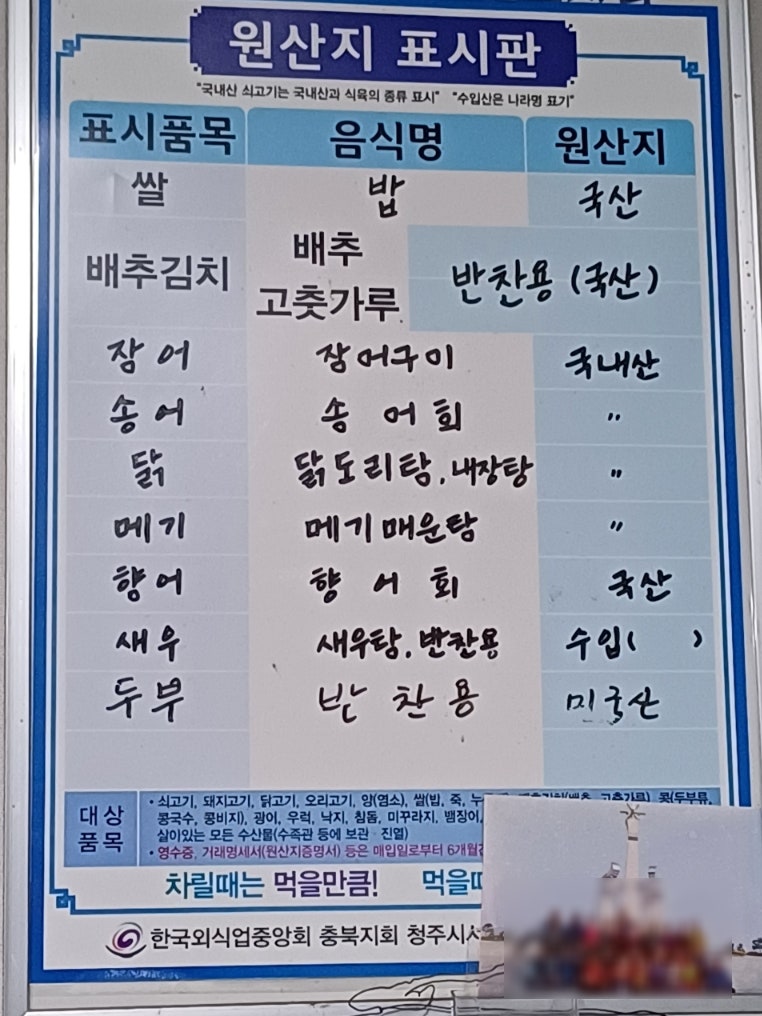 원산지 표시판
"국내산 쇠고기는 국내산과 식육의 종류 표시" "수입산은 나라명 표기"
표시품목 음식명 원산지
쌀 밥 국산
배추김치 배추 고춧가루 반찬용 (국산)
장어 장어구이 국내산
송어 송어회 〃
닭 닭도리탕, 내장탕 〃
메기 메기매운탕 〃
향어 향어회 국산
새우 새우탕, 반찬용 수입( )
두부 반찬용 미국산
대상품목
• 쇠고기, 돼지고기, 닭고기, 오리고기, 양(염소), 쌀(밥, 죽, 배추김치(배추, 고춧가루), 콩(두부류,
콩국수, 콩비지), 광어, 우럭, 낙지, 참돔, 미꾸라지, 뱀장어,
살아있는 모든 수산물(수족관 등에 보관·진열)
• 영수증, 거래명세서(원산지증명서) 등은 매입일로부터 6개월간
차릴때는 먹을만큼! 먹을때
한국외식업중앙회 충북지회 청주시